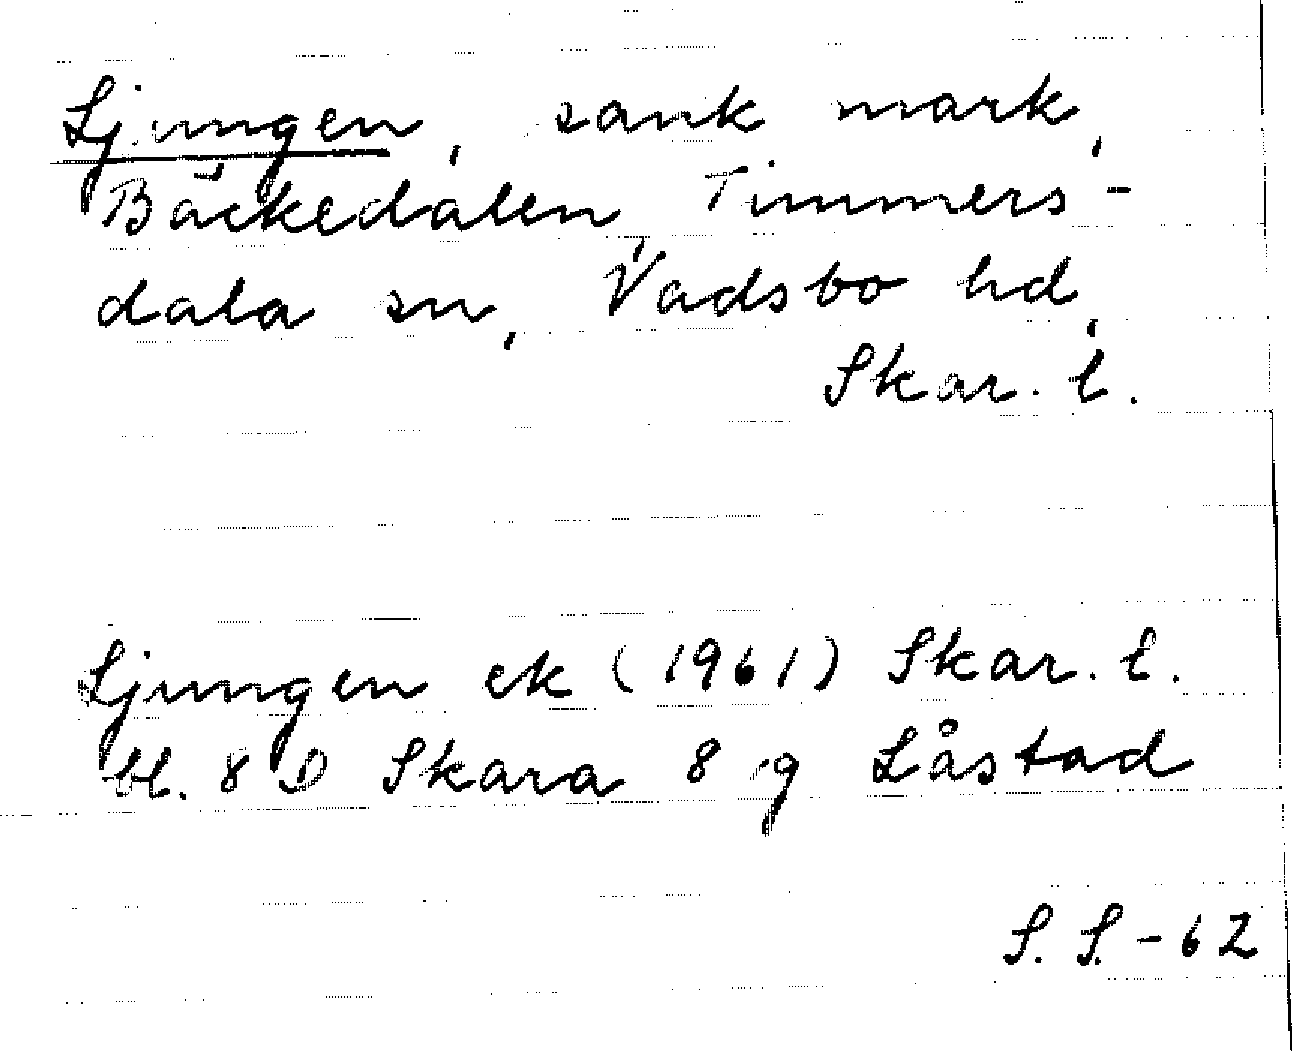 Ljungen, sank mark,
Bäckedalen, Timmers-
dala sn, Vadsbo hd,
Skar. l.
Ljungen ek (1961) Skar. l.
bl. 8 D Skara 8 g Låstad
S. S. - 62